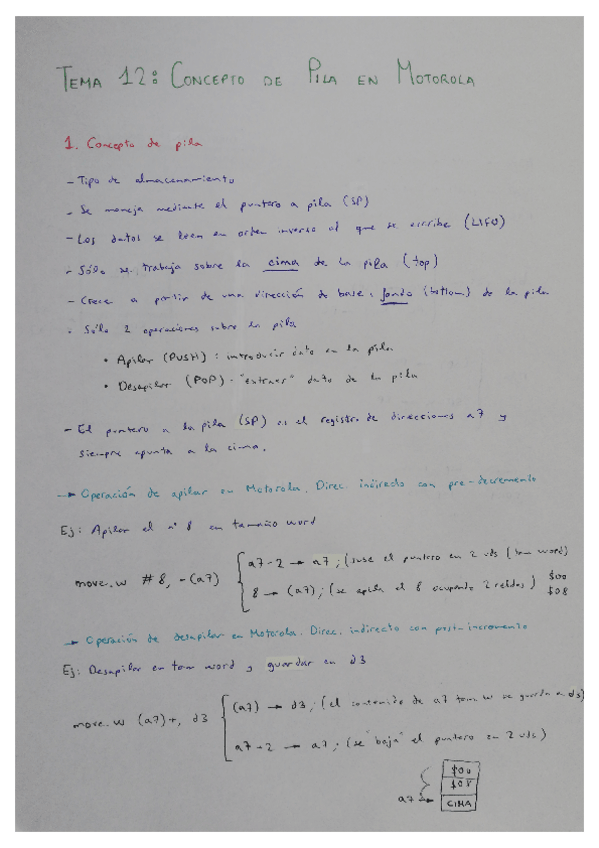 TEMA 12: CONCEPTO DE PILA EN MOTOROLA
1. Concepto de pila
- Tipo de almacenamiento
- Se maneja mediante el puntero a pila (SP)
- Los datos se leen en orden inverso al que se escribe (LIFO)
- Sólo se trabaja sobre la cima de la pila (top)
- Crece a partir de una dirección de base: fondo (bottom) de la pila
- Sólo 2 operaciones sobre la pila
• Apilar (PUSH): introducir dato en la pila
• Desapilar (POP): "extraer" dato de la pila
- El puntero a la pila (SP) es el registro de direcciones a7 y
siempre apunta a la cima.
→ Operación de apilar en Motorola. Direc. indirecto con pre-decremento
Ej: Apilar el nº 8 en tamaño word
a7-2 → a7; (sube el puntero en 2 uds (tam word)
move.w #8, -(a7)
8 → (a7); (se apila el 8 ocupando 2 celdas) $00
$08
→ Operación de desapilar en Motorola. Direc. indirecto con post-incremento
Ej: Desapilar en tam word y guardar en d3
(a7) → d3; (el contenido de a7 tam w se guarda en d3)
move.w (a7)+, d3
a7+2 → a7; (se "baja" el puntero en 2 uds)
$00
$08
a7 → CIMA